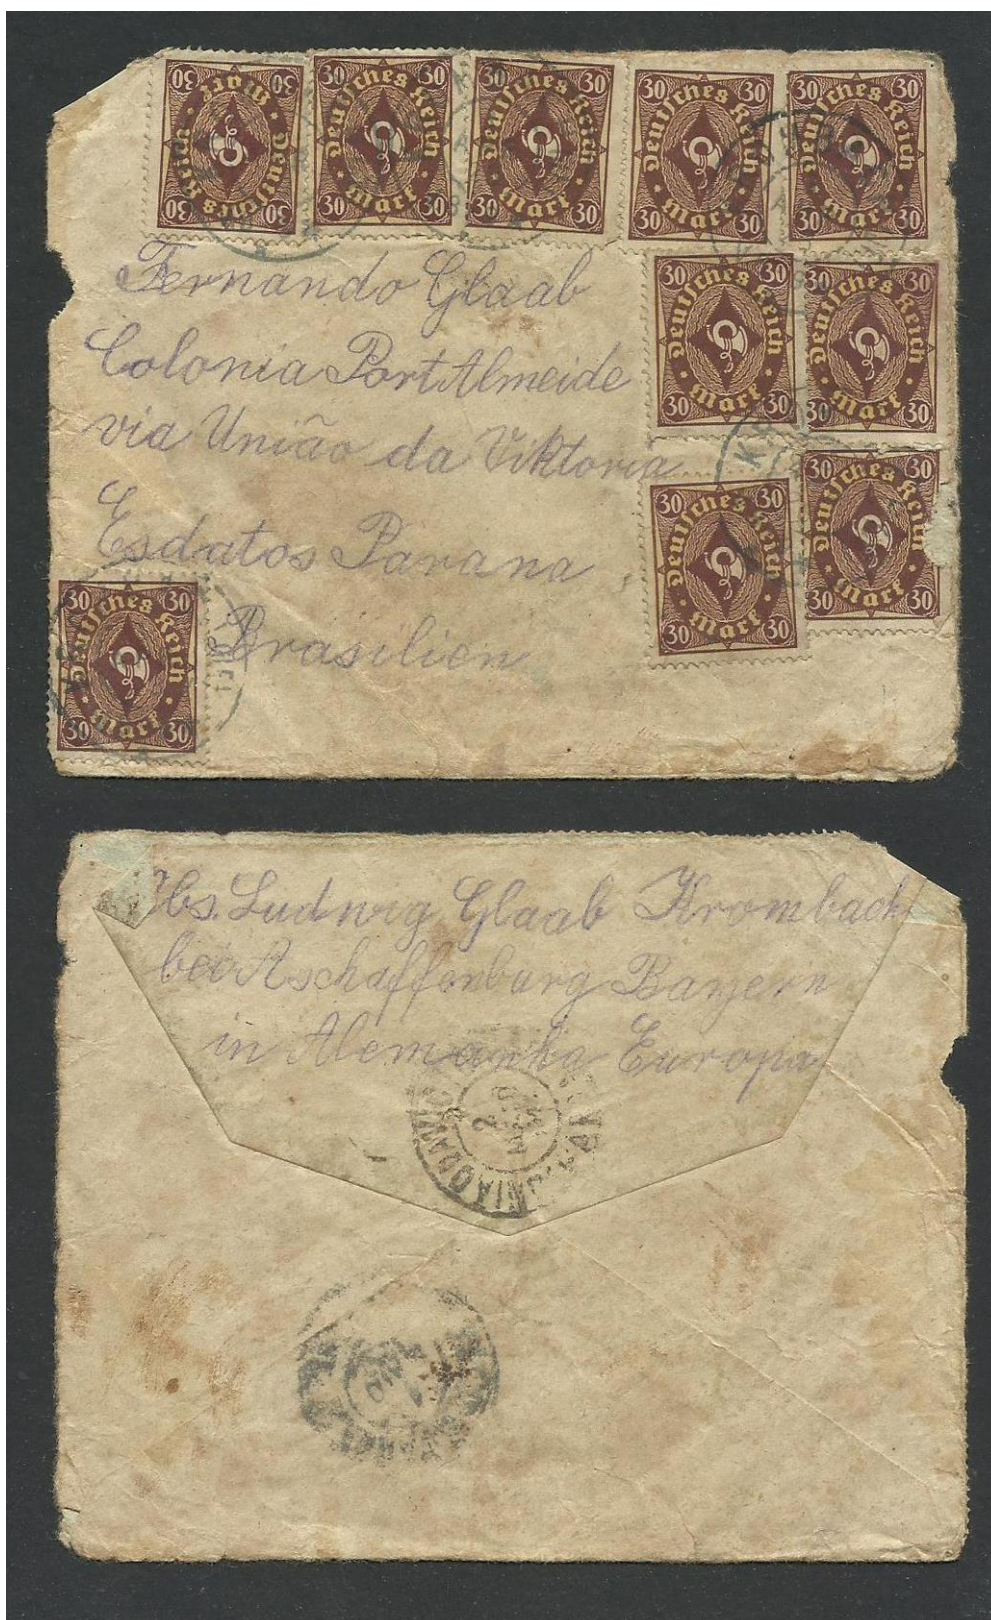 30 30
Deutsches Reich
Mark
30 30
30 30
Deutsches Reich
Mark
30 30
30 30
Deutsches Reich
Mark
30 30
30 30
Deutsches Reich
Mark
30 30
30 30
Deutsches Reich
Mark
30 30
30 30
Deutsches Reich
Mark
30 30
30 30
Deutsches Reich
Mark
30 30
30 30
Deutsches Reich
Mark
30 30
30 30
Deutsches Reich
Mark
30 30
Fernando Glaab
Colonia Port Almeide
via União da Viktoria
Esdatos Parana
Brasilien
30 30
Deutsches Reich
Mark
30 30
Abs. Ludwig Glaab Krombach
bei Aschaffenburg Bayern
in Alemanha Europa